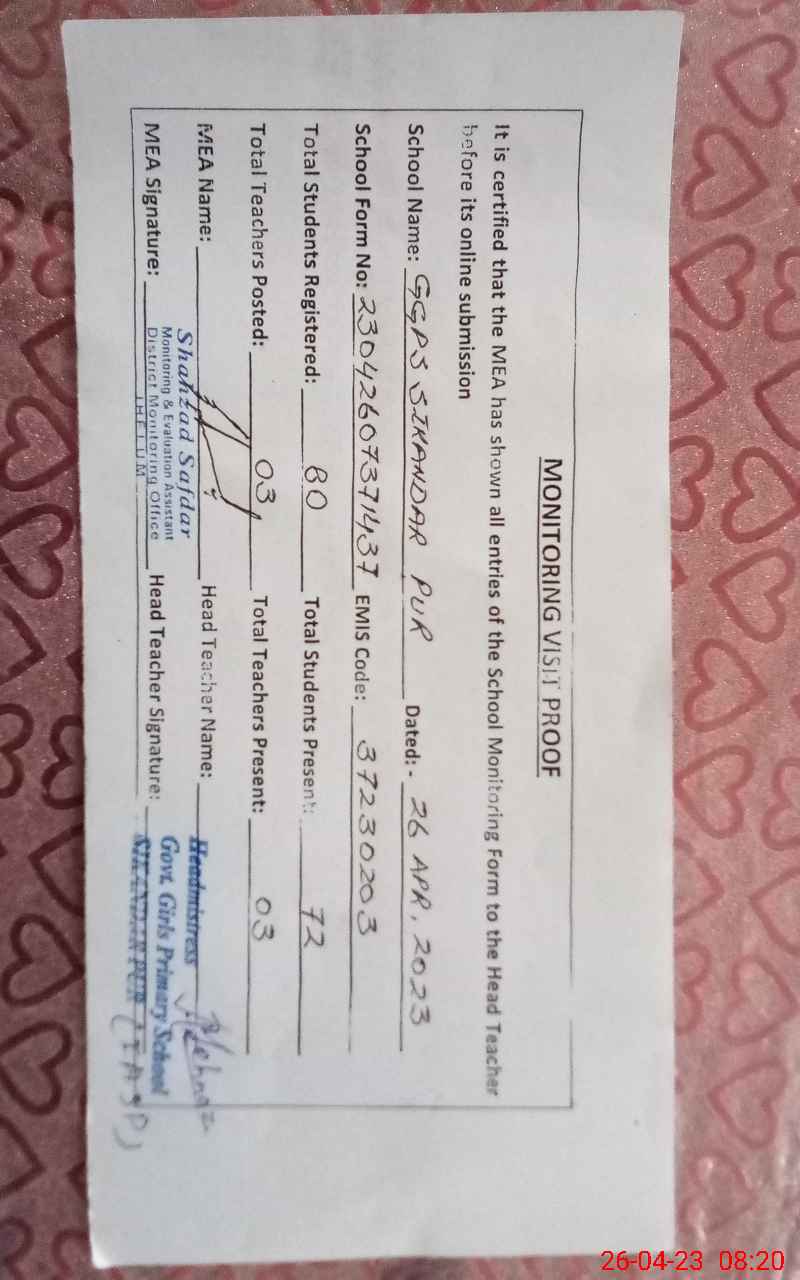 MONITORING VISIT PROOF
It is certified that the MEA has shown all entries of the School Monitoring Form to the Head Teacher
before its online submission
School Name: GGPS SIKANDAR PUR Dated: - 26 APR, 2023
School Form No: 23042607371437 EMIS Code: 37230203
Total Students Registered: 80 Total Students Present: 72
Total Teachers Posted: 03 Total Teachers Present: 03
MEA Name: Head Teacher Name: Headmistress Mehnaz
Shahzad Safdar
Monitoring & Evaluation Assistant Govt. Girls Primary School
MEA Signature: District Monitoring Office Head Teacher Signature: SIKANDAR PUR
JHELUM
26-04-23 08:20